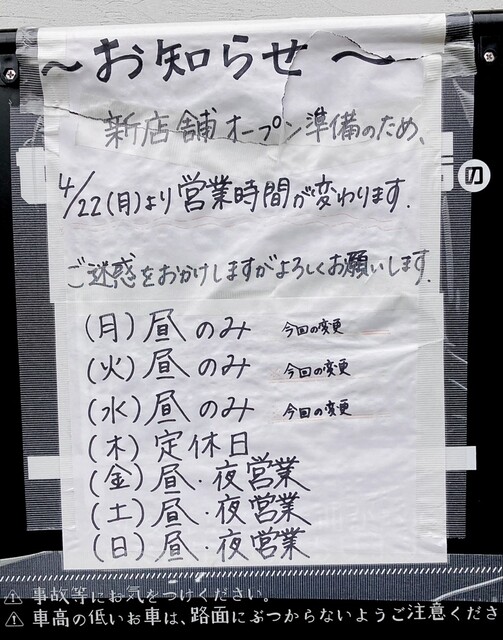 ～お知らせ～
新店舗オープン準備のため、
4/22(月)より営業時間が変わります.
ご迷惑をおかけしますがよろしくお願いします.
(月)昼のみ 今回の変更
(火)昼のみ 今回の変更
(水)昼のみ 今回の変更
(木)定休日
(金)昼・夜営業
(土)昼・夜営業
(日)昼・夜営業
⚠ 事故等にお気をつけください。
⚠ 車高の低いお車は、路面にぶつからないようご注意くださ